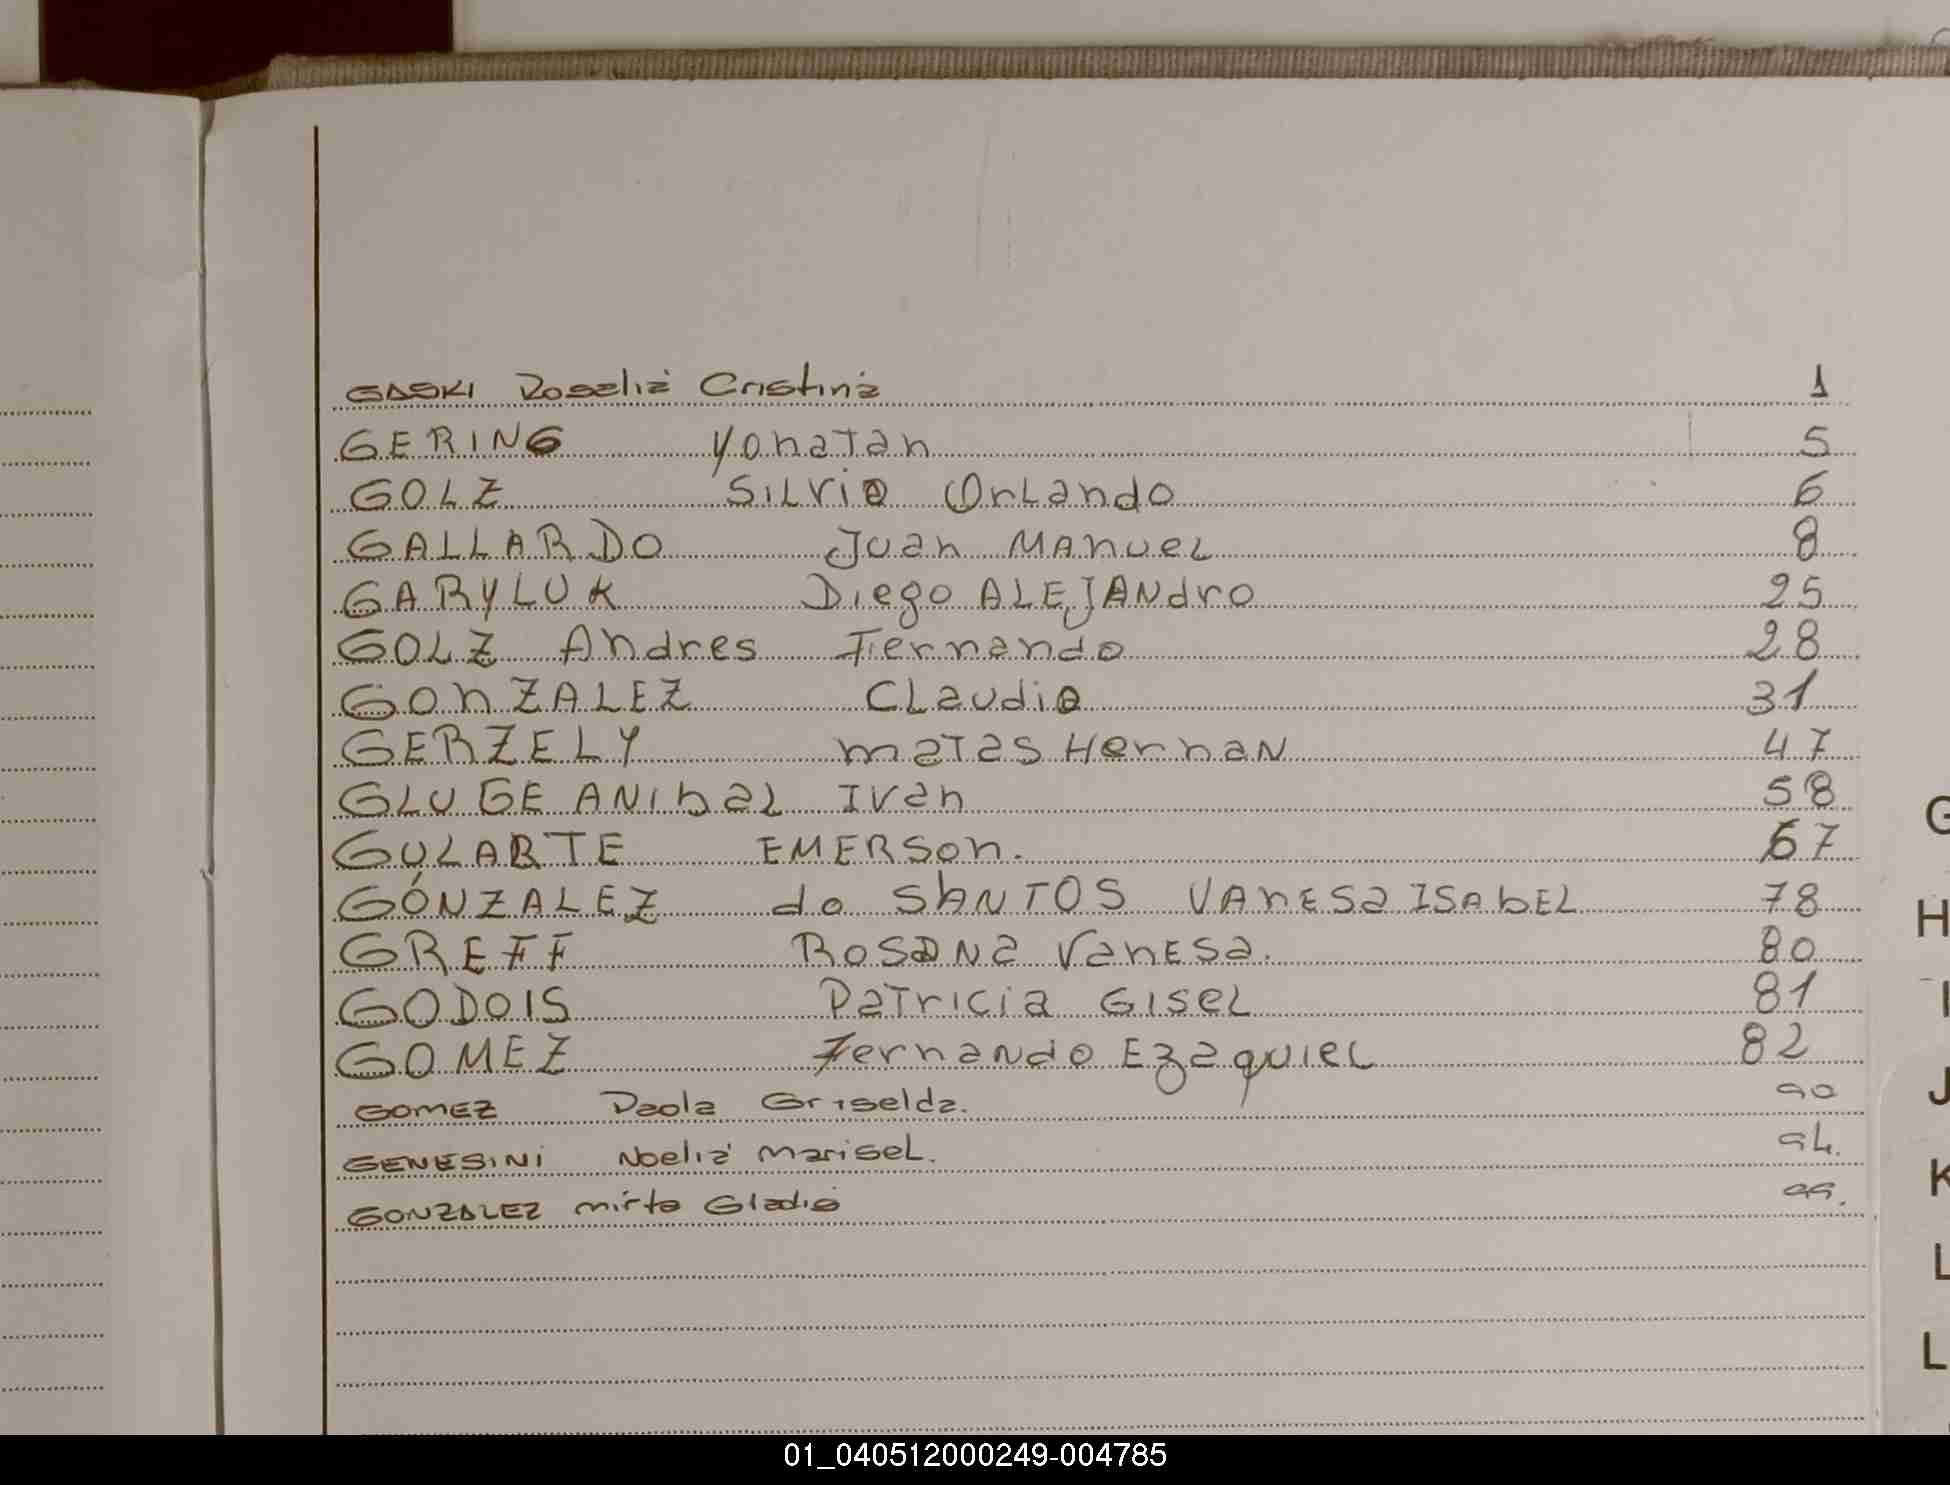 GASKI Roselia Cristina 1
GERING Yonatan 5
GOLZ Silvio Orlando 6
GALLARDO Juan Manuel 8
GARYLUK Diego ALEJANdro 25
GOLZ Andres Fernando 28
GONZALEZ Claudio 31
GERZELY Matas Hernan 47
GLUGE ANibal Ivan 58
GULARTE EMERSON. 67
GÓNZALEZ do SANTOS VANESA ISAbEL 78
GREFF ROSANA VanESa. 80
GODOIS Patricia GISEL 81
GOMEZ Fernando Ezequiel 82
GOMEZ Paola Griselda. 90
GENESINI Noelia Marisel. 94.
GONZALEZ Mirta Gladis 99.
G
H
I
J
K
L
L
01_040512000249-004785